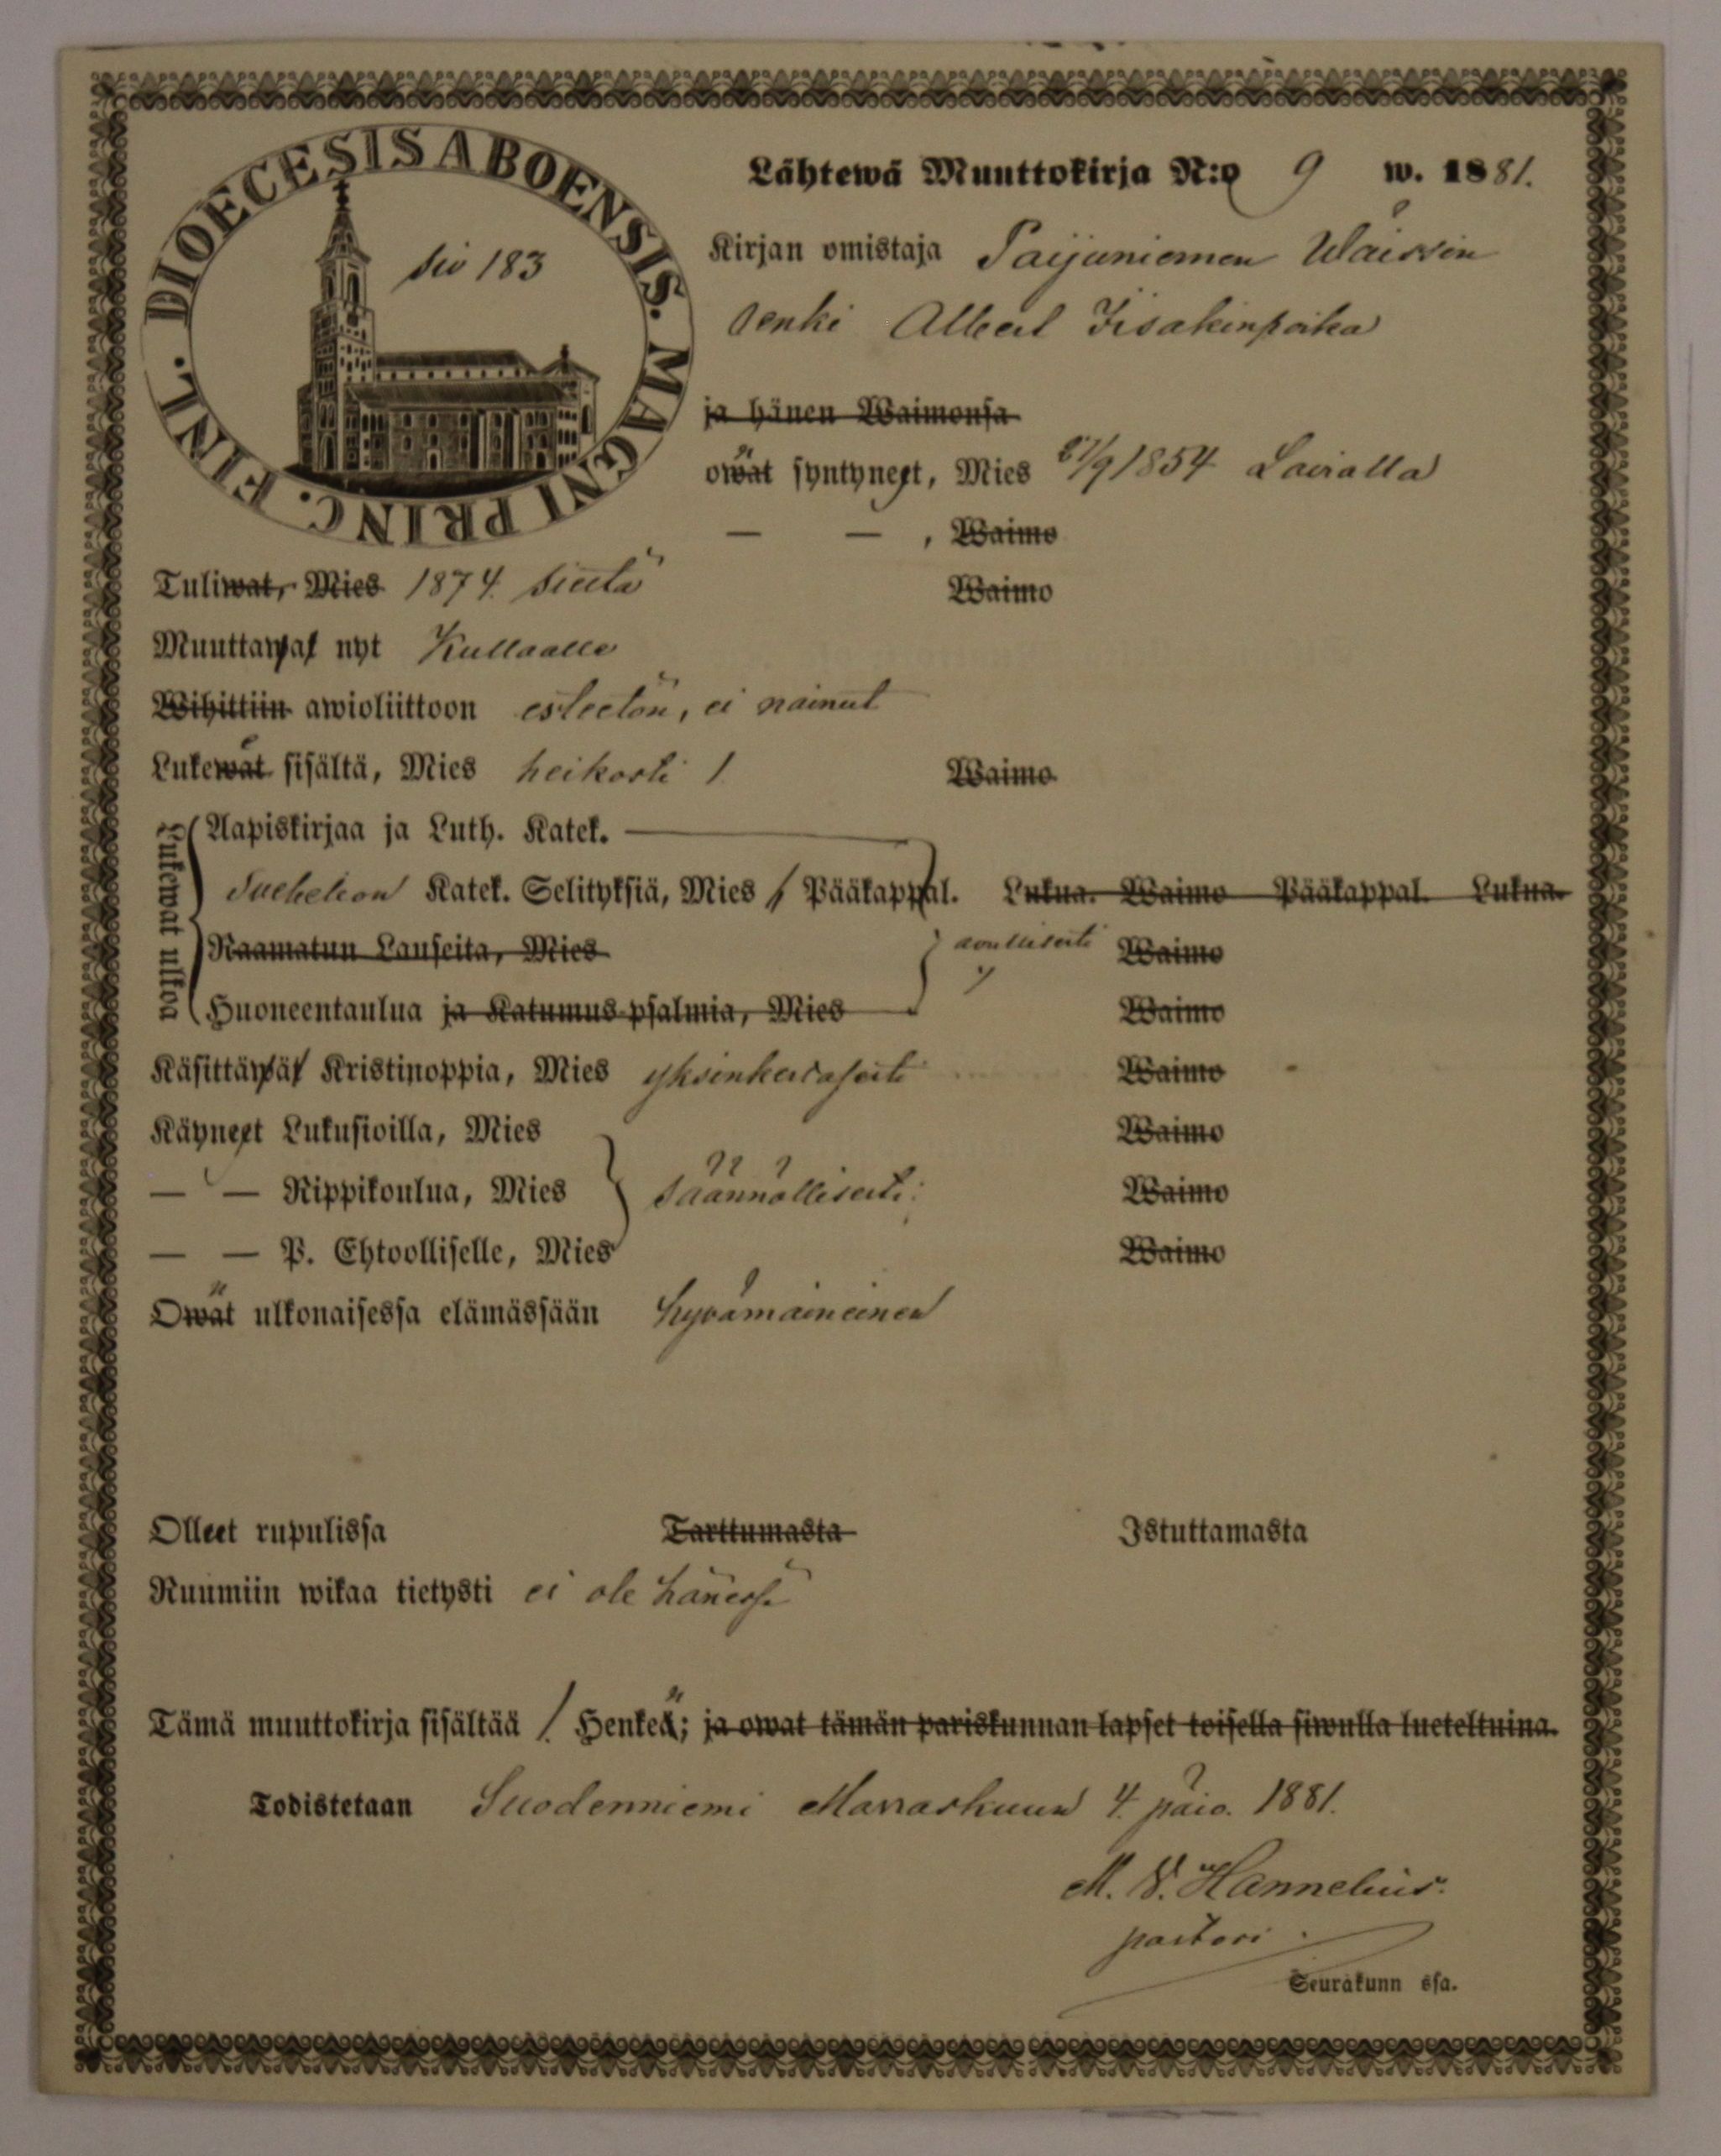 DIOECESIS ABOENSIS. MAGNI PRINC. FINL.
siv 183
Lähtewä Muuttokirja N:o 9 w. 1881.
Kirjan omistaja Paijuniemen
renki Albert Iisakinpoika
ja hänen Waimonsa
owat syntyneet, Mies /9 1854 Lavialla
— — , Waimo
Tuliwat, Mies 1874 sieltä Waimo
Muuttawat nyt Kullaalle
Wihittiin awioliittoon esteetön, ei nainut
Lukewat sisältä, Mies heikosti 1 Waimo
Lukewat ulkoa
Aapiskirjaa ja Luth. Katek.
Katek. Selityksiä, Mies 1 Pääkappal. Lukua. Waimo Pääkappal. Lukua.
Raamatun Lauseita, Mies Waimo
Huoneentaulua ja Katumus-psalmia, Mies Waimo
Käsittäwät Kristinoppia, Mies yksinkertaisesti Waimo
Käyneet Lukusioilla, Mies Waimo
— — Rippikoulua, Mies säännöllisesti Waimo
— — P. Ehtoolliselle, Mies Waimo
Owat ulkonaisessa elämässään hyvämaineinen
Olleet rupulissa Tarttumasta Istuttamasta
Ruumiin wikaa tietysti ei ole hänessä
Tämä muuttokirja sisältää 1. Henkeä; ja owat tämän pariskunnan lapset toisella siwulla lueteltuina.
Todistetaan Suodenniemi Marraskuun 4. päiv. 1881.
M. V. Hannelius.
pastori.
Seurakunn ssa.